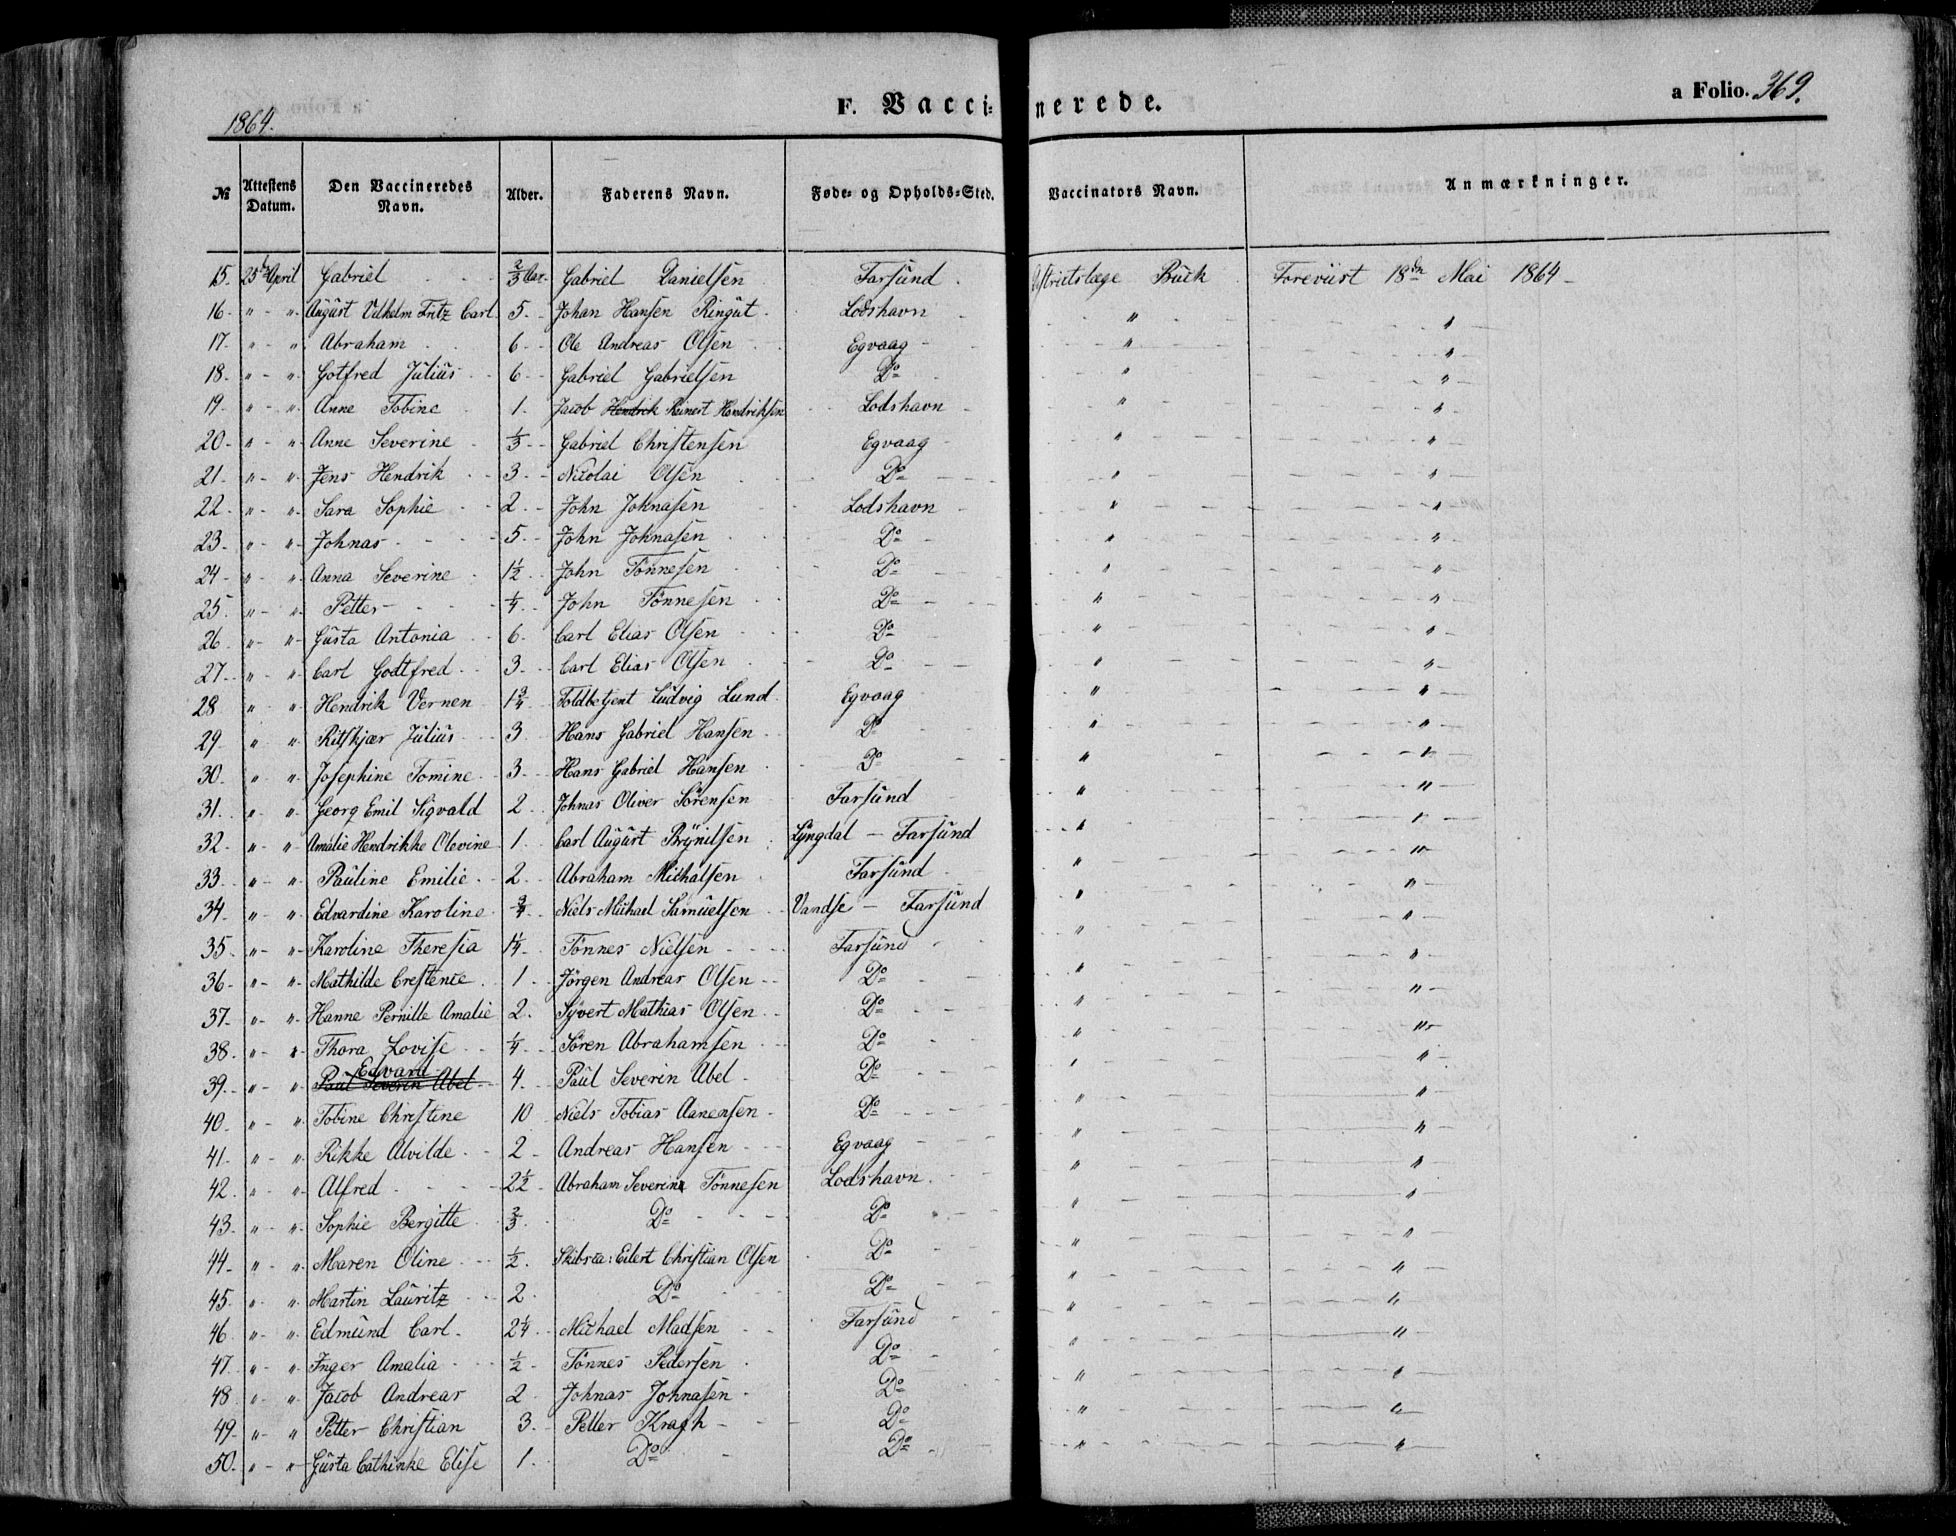 1864. F. Vaccinerede. a Folio. 369.
№ Attestens Datum. Den Vaccineredes Navn. Alder. Faderens Navn. Føde- og Opholds-Sted. Vaccinators Navn. Anmærkninger.
15. 25de April Gabriel 2/3 Aar. Gabriel Danielsen Farsund Distriktslæge Buck Foreviist 18de Mai 1864
16 " " August Vilhelm Fritz Carl 5 Johan Hansen Ringut Lodshavn " "
17 " " Abraham 6 Ole Andreas Olsen Egvaag " "
18 " " Gotfred Julius 6 Gabriel Gabrielsen Do " "
19 " " Anne Tobine 1 Jacob Hendrik Reinert Hendriksen Lodshavn " "
20 " " Anne Severine 1/3 Gabriel Christensen Egvaag " "
21 " " Jens Hendrik 3 Nicolai Olsen Do " "
22 " " Sara Sophie 2 John Johnasen Lodshavn " "
23 " " Johnas 5 John Johnasen Do " "
24 " " Anna Severine 1 1/2 John Tönnesen Do " "
25 " " Petter 1/4 John Tönnesen Do " "
26 " " Gusta Antonia 6 Carl Elias Olsen Do " "
27 " " Carl Godtfred 3 Carl Elias Olsen Do " "
28 " " Hendrik Vernen 1 3/4 Toldbetjent Ludvig Lund Egvaag " "
29 " " Ritskjær Julius 3 Hans Gabriel Hansen Do " "
30 " " Josephine Tomine 3 Hans Gabriel Hansen Do " "
31 " " Georg Emil Sigvald 2 Johnas Oliver Sörensen Farsund " "
32 " " Amalie Hendrikke Olevine 1 Carl August Brynilsen Lyngdal - Farsund " "
33 " " Pauline Emilie 2 Abraham Michalsen Farsund " "
34 " " Edvardine Karoline 3/4 Niels Michael Samuelsen Vandse - Farsund " "
35 " " Karoline Theresia 1 1/4 Tönnes Nielsen Farsund " "
36 " " Mathilde Crestence 1 Jörgen Andreas Olsen Do " "
37 " " Hanne Pernille Amalie 2 Syvert Mathias Olsen Do " "
38 " " Thora Lovise 1/4 Sören Abrahamsen Do " "
39 " " Paul Severin Abel Edvard 4 Paul Severin Abel Do " "
40 " " Tobine Christine 10 Niels Tobias Aanensen Do " "
41 " " Rikke Alvilde 2 Andreas Hansen Egvaag " "
42 " " Alfred 2 1/2 Abraham Severin Tönnesen Lodshavn " "
43 " " Sophie Bergitte 2/3 Do Do " "
44 " " Maren Oline 1/2 Eilert Christian Olsen Do " "
45 " " Martin Lauritz 2 Do Do " "
46 " " Edmund Carl 2 1/4 Michael Madsen Farsund " "
47 " " Inger Amalia 1/2 Tönnes Pedersen Do " "
48 " " Jacob Andreas 2 Johnas Johnasen Do " "
49 " " Petter Christian 3 Petter Kragh Do " "
50 " " Gusta Cathinke Elise 1 Do Do " "